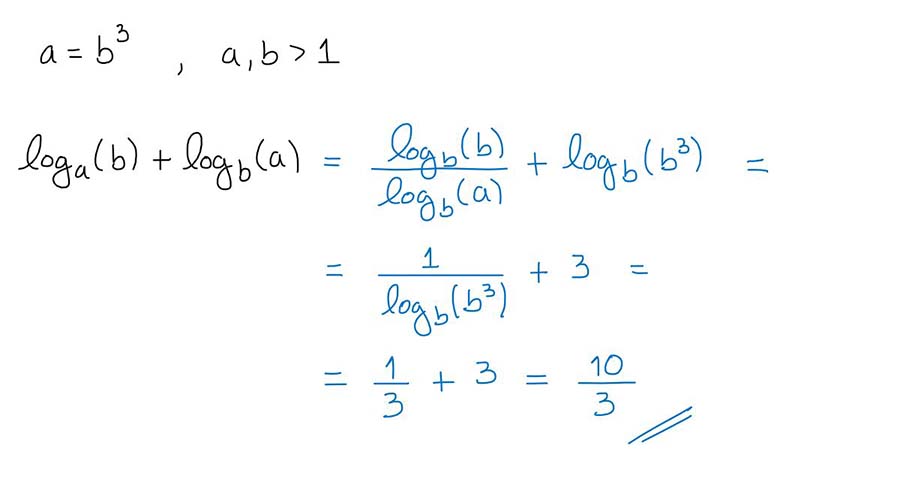 a = b³ , a, b > 1
logₐ(b) + log_b(a) = log_b(b)/log_b(a) + log_b(b³) =
= 1/log_b(b³) + 3 =
= 1/3 + 3 = 10/3